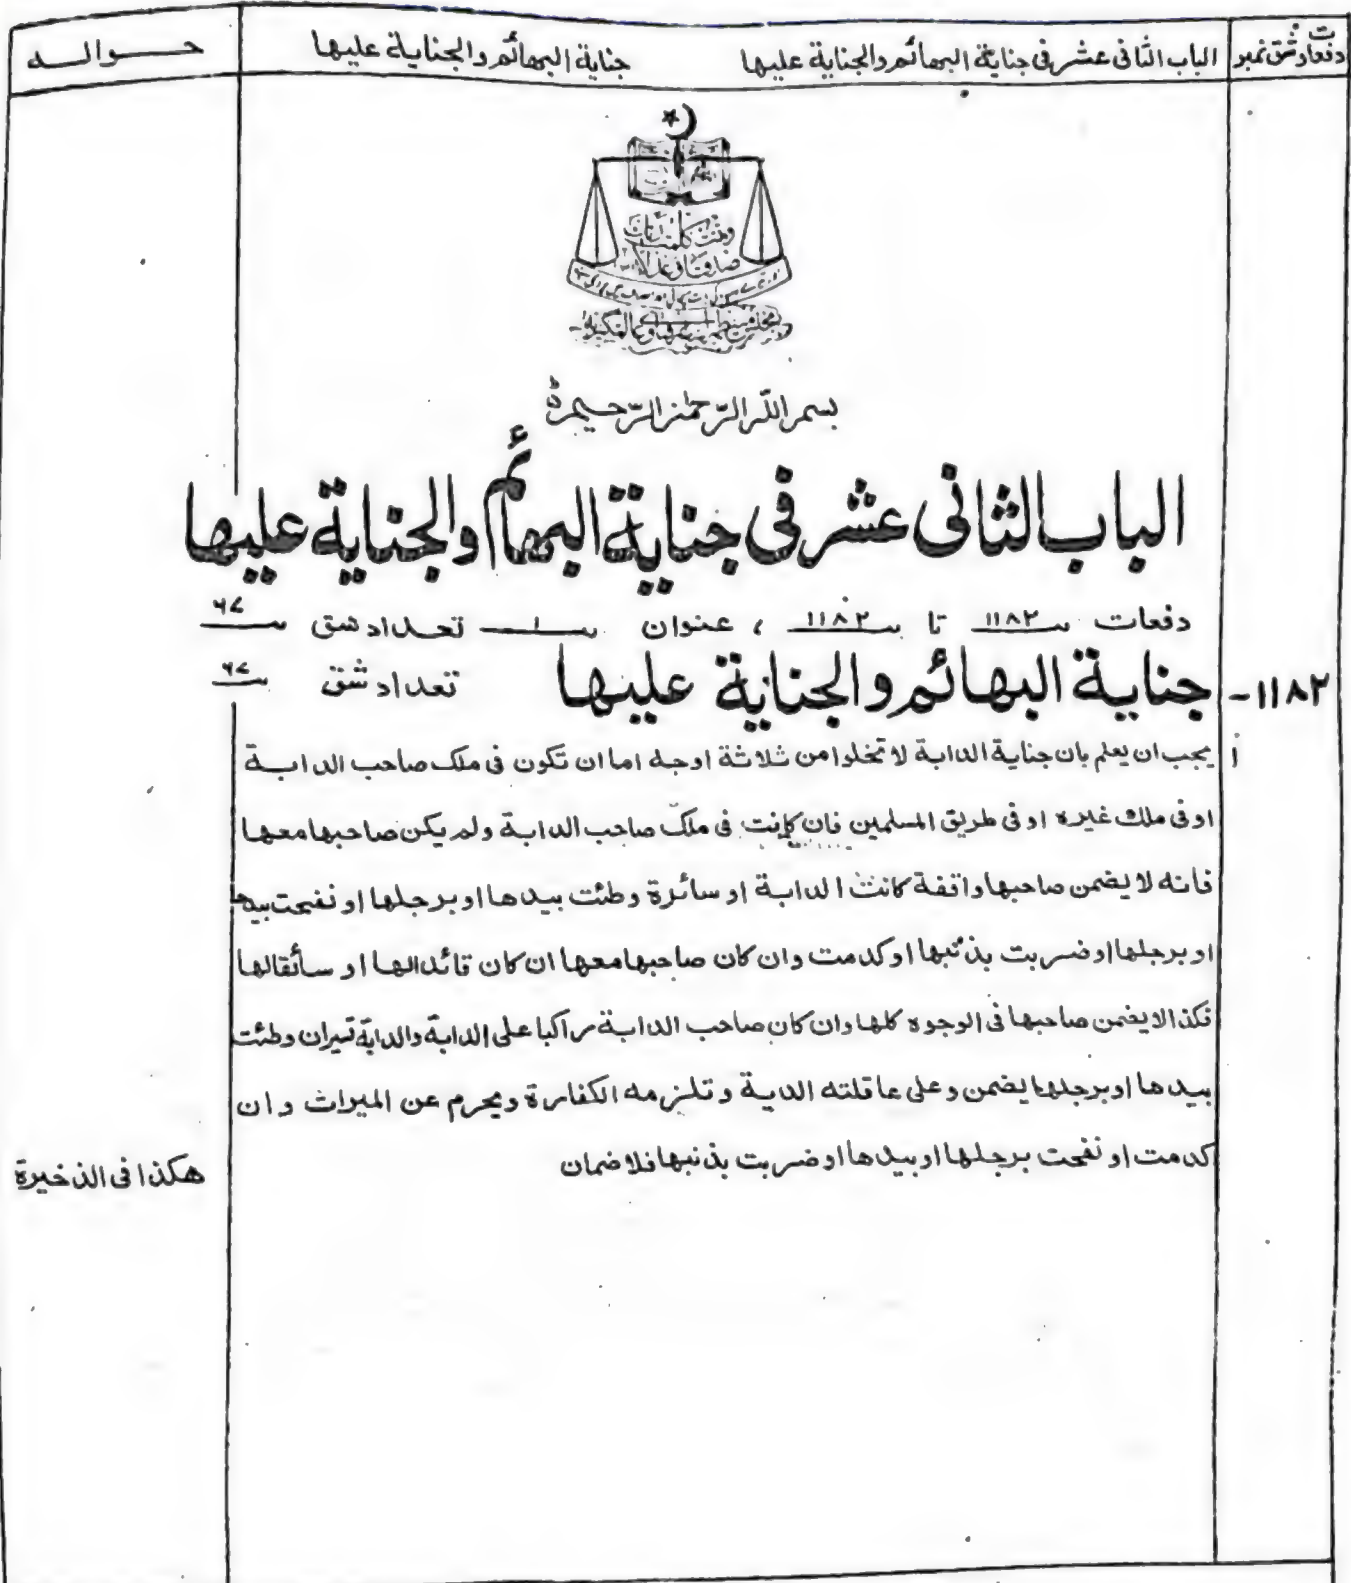 دفعات شق نمبر
الباب الثانی عشر فی جنایة البهائم والجنایة علیها
جنایة البهائم والجنایة علیها
حواله
وتمت كلمت ربك
صدقا وعدلا
بسم الله الرحمن الرحیم
الباب الثانی عشر فی جنایة البهائم والجنایة علیها
دفعات ١١٨٢ تا ١١٨٢ ، عنوان ١ تعداد شق ٦٧
١١٨٢- جنایة البهائم والجنایة علیها تعداد شق ٦٧
أ یجب ان یعلم بان جنایة الدابة لا تخلوا من ثلاثة اوجه اما ان تكون فی ملك صاحب الدابة
او فی ملك غیره او فی طریق المسلمین فان كانت فی ملك صاحب الدابة ولم یكن صاحبها معها
فانه لا یضمن صاحبها واقفة كانت الدابة او سائرة وطئت بیدها او برجلها او نفحت بیدها
او برجلها او ضربت بذنبها او كدمت وان كان صاحبها معها ان كان قائدا لها او سائقا لها
فكذا لا یضمن صاحبها فی الوجوه كلها وان كان صاحب الدابة راكبا علی الدابة والدابة تسیر ان وطئت
بیدها او برجلها یضمن وعلی عاقلته الدیة وتلزمه الكفارة ویحرم عن المیراث وان
كدمت او نفحت برجلها او بیدها او ضربت بذنبها فلا ضمان
هكذا فی الذخیرة